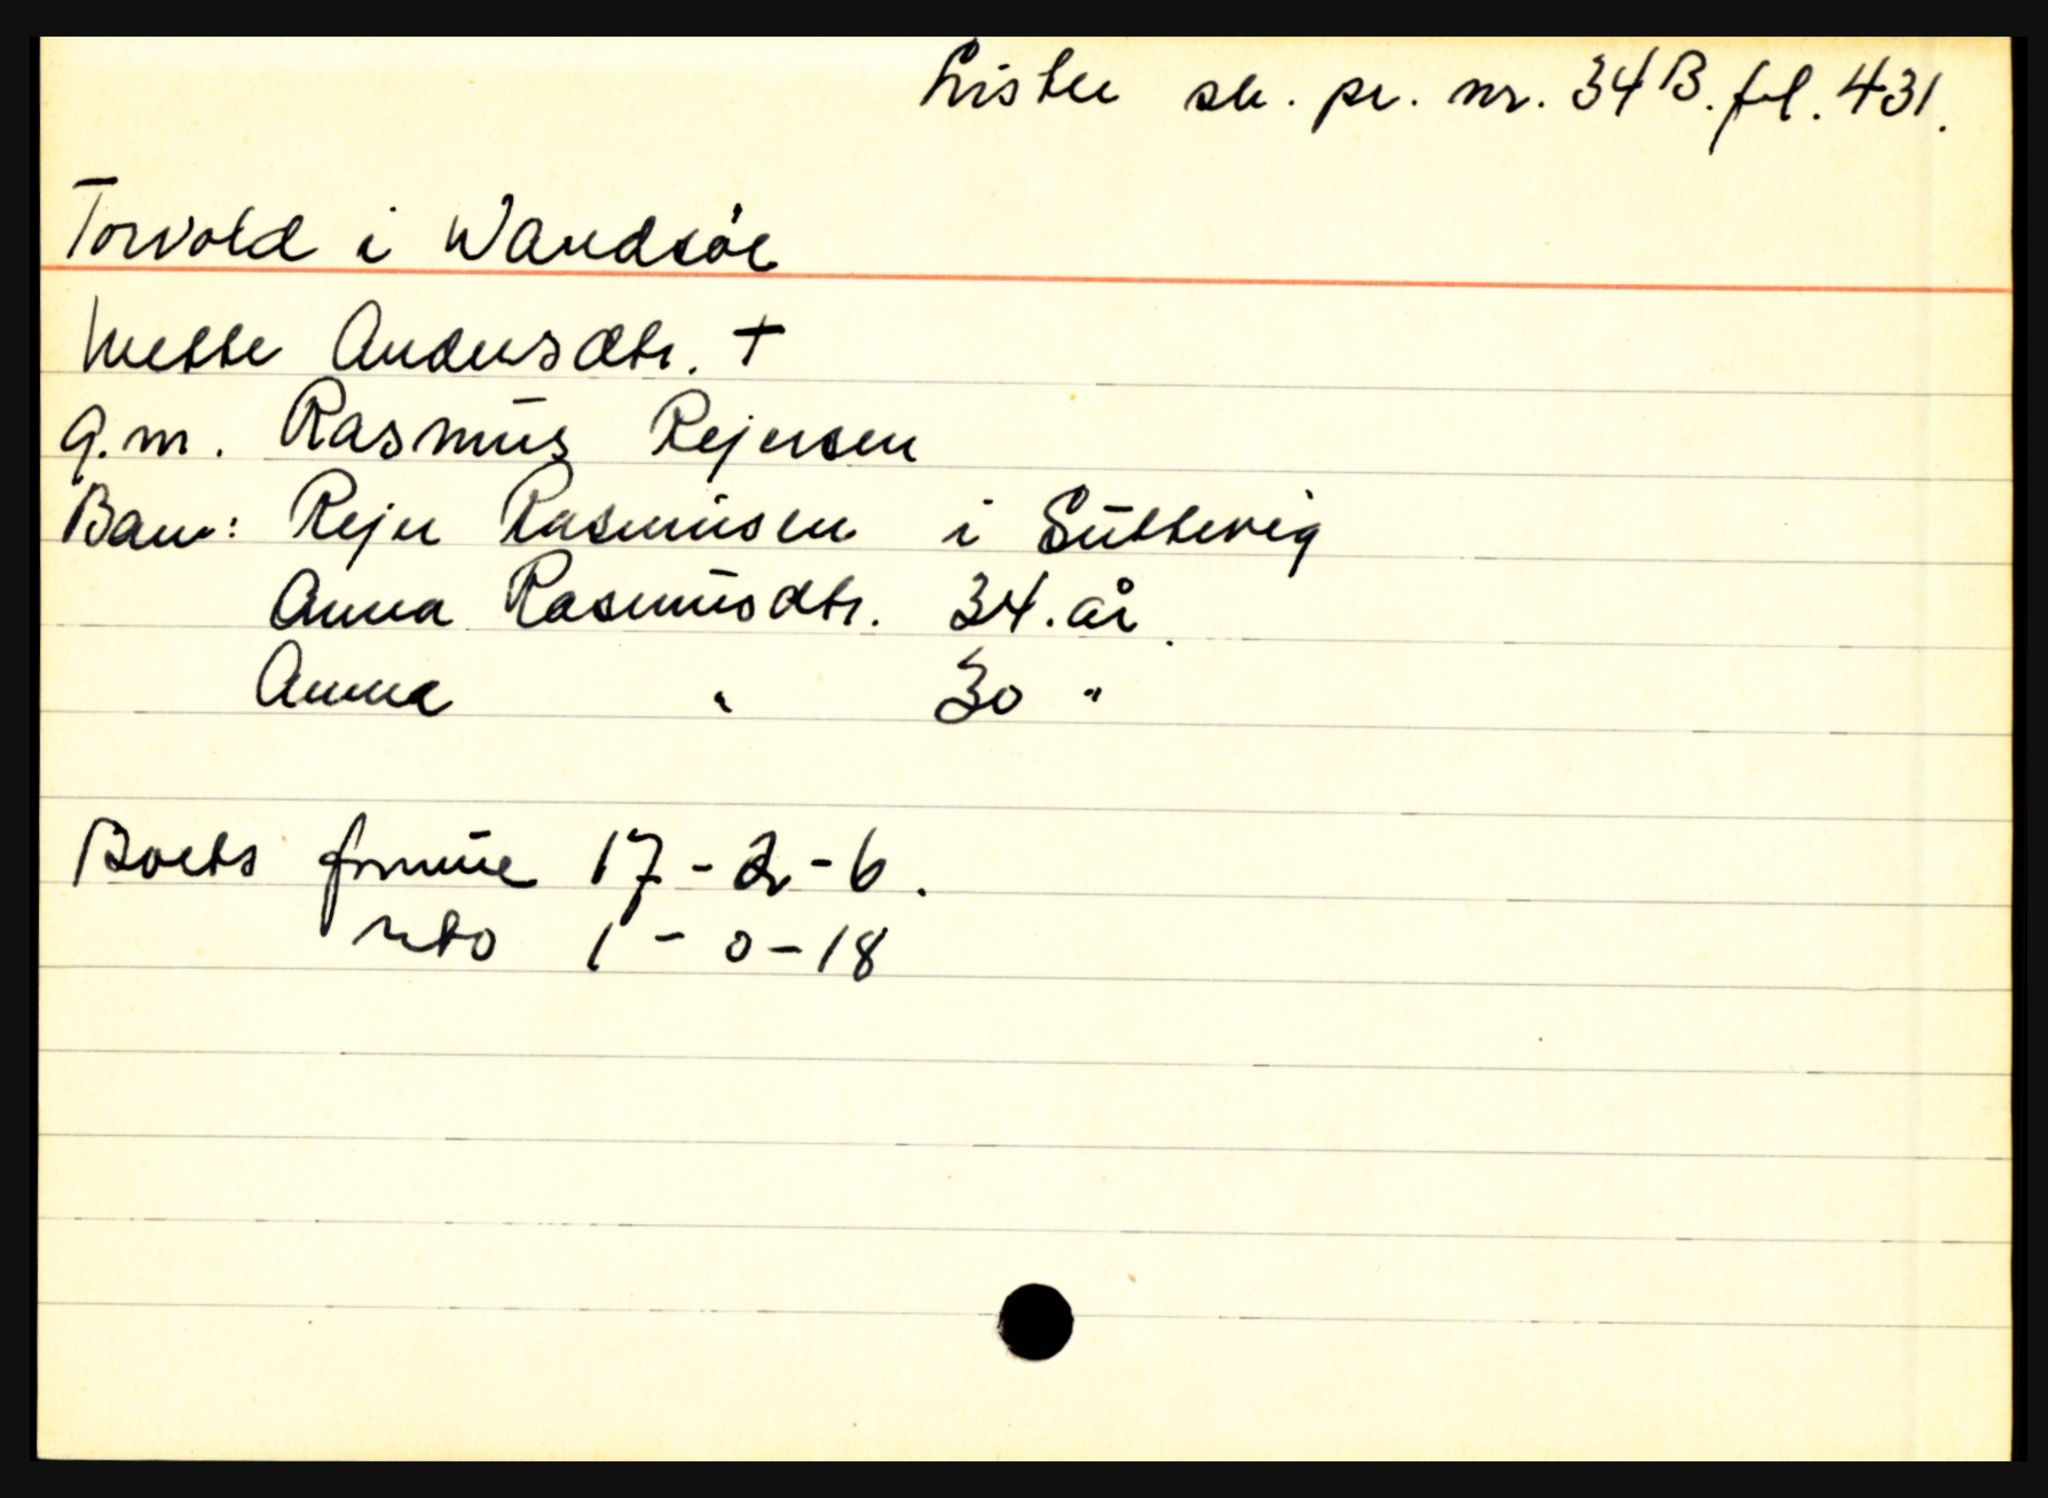 Lister sk. pr. nr. 34B. fol. 431.
Torvold i Wandsøe
Mette Andersdtr. +
g.m. Rasmus Rejersen
Barn: Rejer Rasmusen i Suttevig
Anna Rasmusdtr. 34. år.
Anna " 30 "
Boets formue 17-2-6.
nto 1-0-18